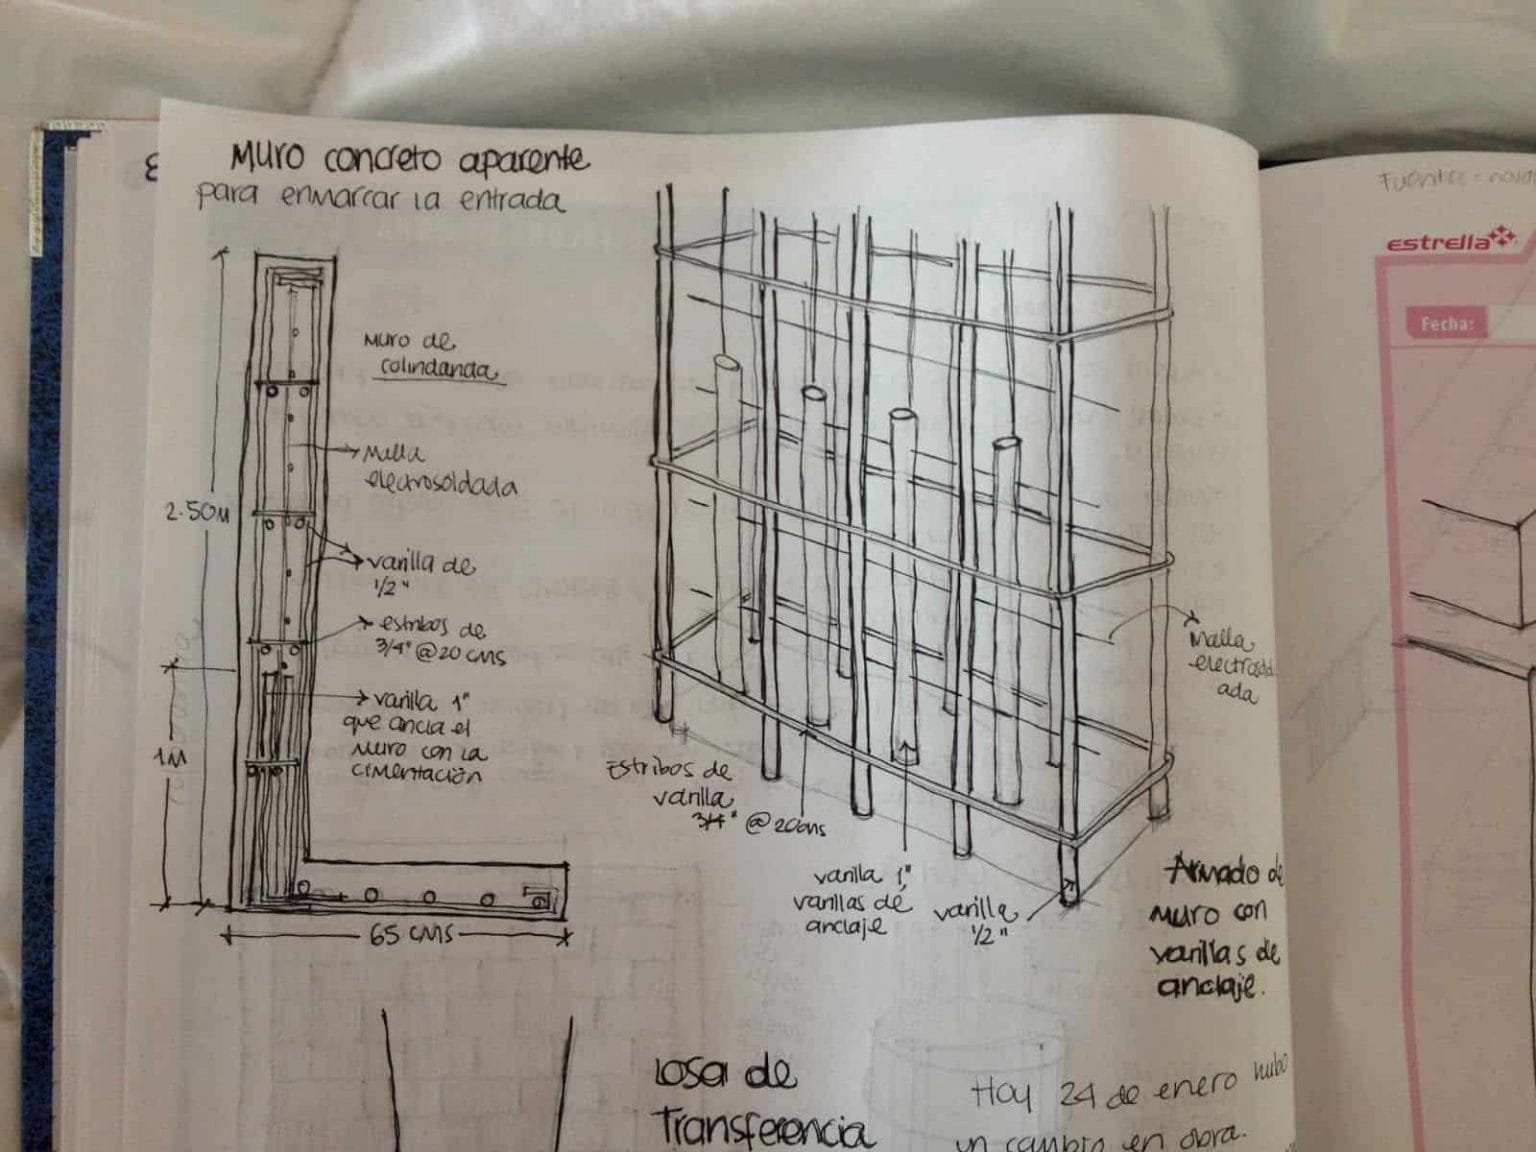 MURO concreto aparente
para enmarcar la entrada
Muro de
colindancia
Malla
electrosoldada
2.50M
varilla de
1/2"
estribos de
3/4" @ 20 cms
varilla 1"
que ancla el
muro con la
cimentación
1M
65 cms
Malla
electrosold
ada
Estribos de
varilla
3/4" @ 20cms
varilla 1"
varillas de
anclaje
varilla
1/2"
Armado de
muro con
varillas de
anclaje.
Losa de
Transferencia
Hoy 24 de enero hubo
un cambio en obra.
Fuentes =
estrella
Fecha: